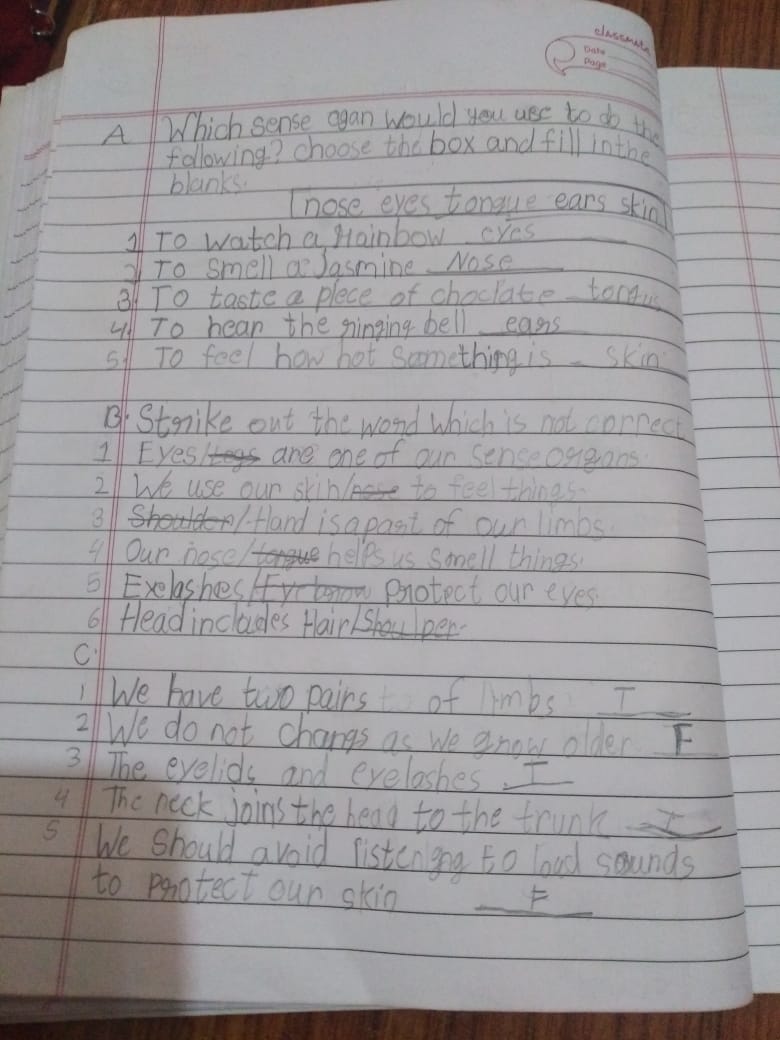 classmate
Date
Page
A Which sense ogan would you use to do the
following? choose the box and fill in the
blanks.
nose eyes tongue ears skin
1 To watch a rainbow eyes
2 To smell a Jasmine Nose
3 To taste a piece of choclate tongus
4 To hear the ringing bell ears
5 To feel how hot Something is skin
B. Strike out the word which is not correct
1 Eyes/legs are one of our sense organs.
2 We use our skin/nose to feel things.
3 Shoulder/Hand is a part of our limbs.
4 Our nose/tongue helps us smell things.
5 Exelashes/Eyebrow protect our eyes.
6 Head includes Hair/Shoulper.
C.
1 We have two pairs to of limbs T
2 We do not changs as we grow older F
3 The eyelids and eyelashes T
4 The neck joins the head to the trunk T
5 We should avoid listening to loud sounds
to protect our skin F